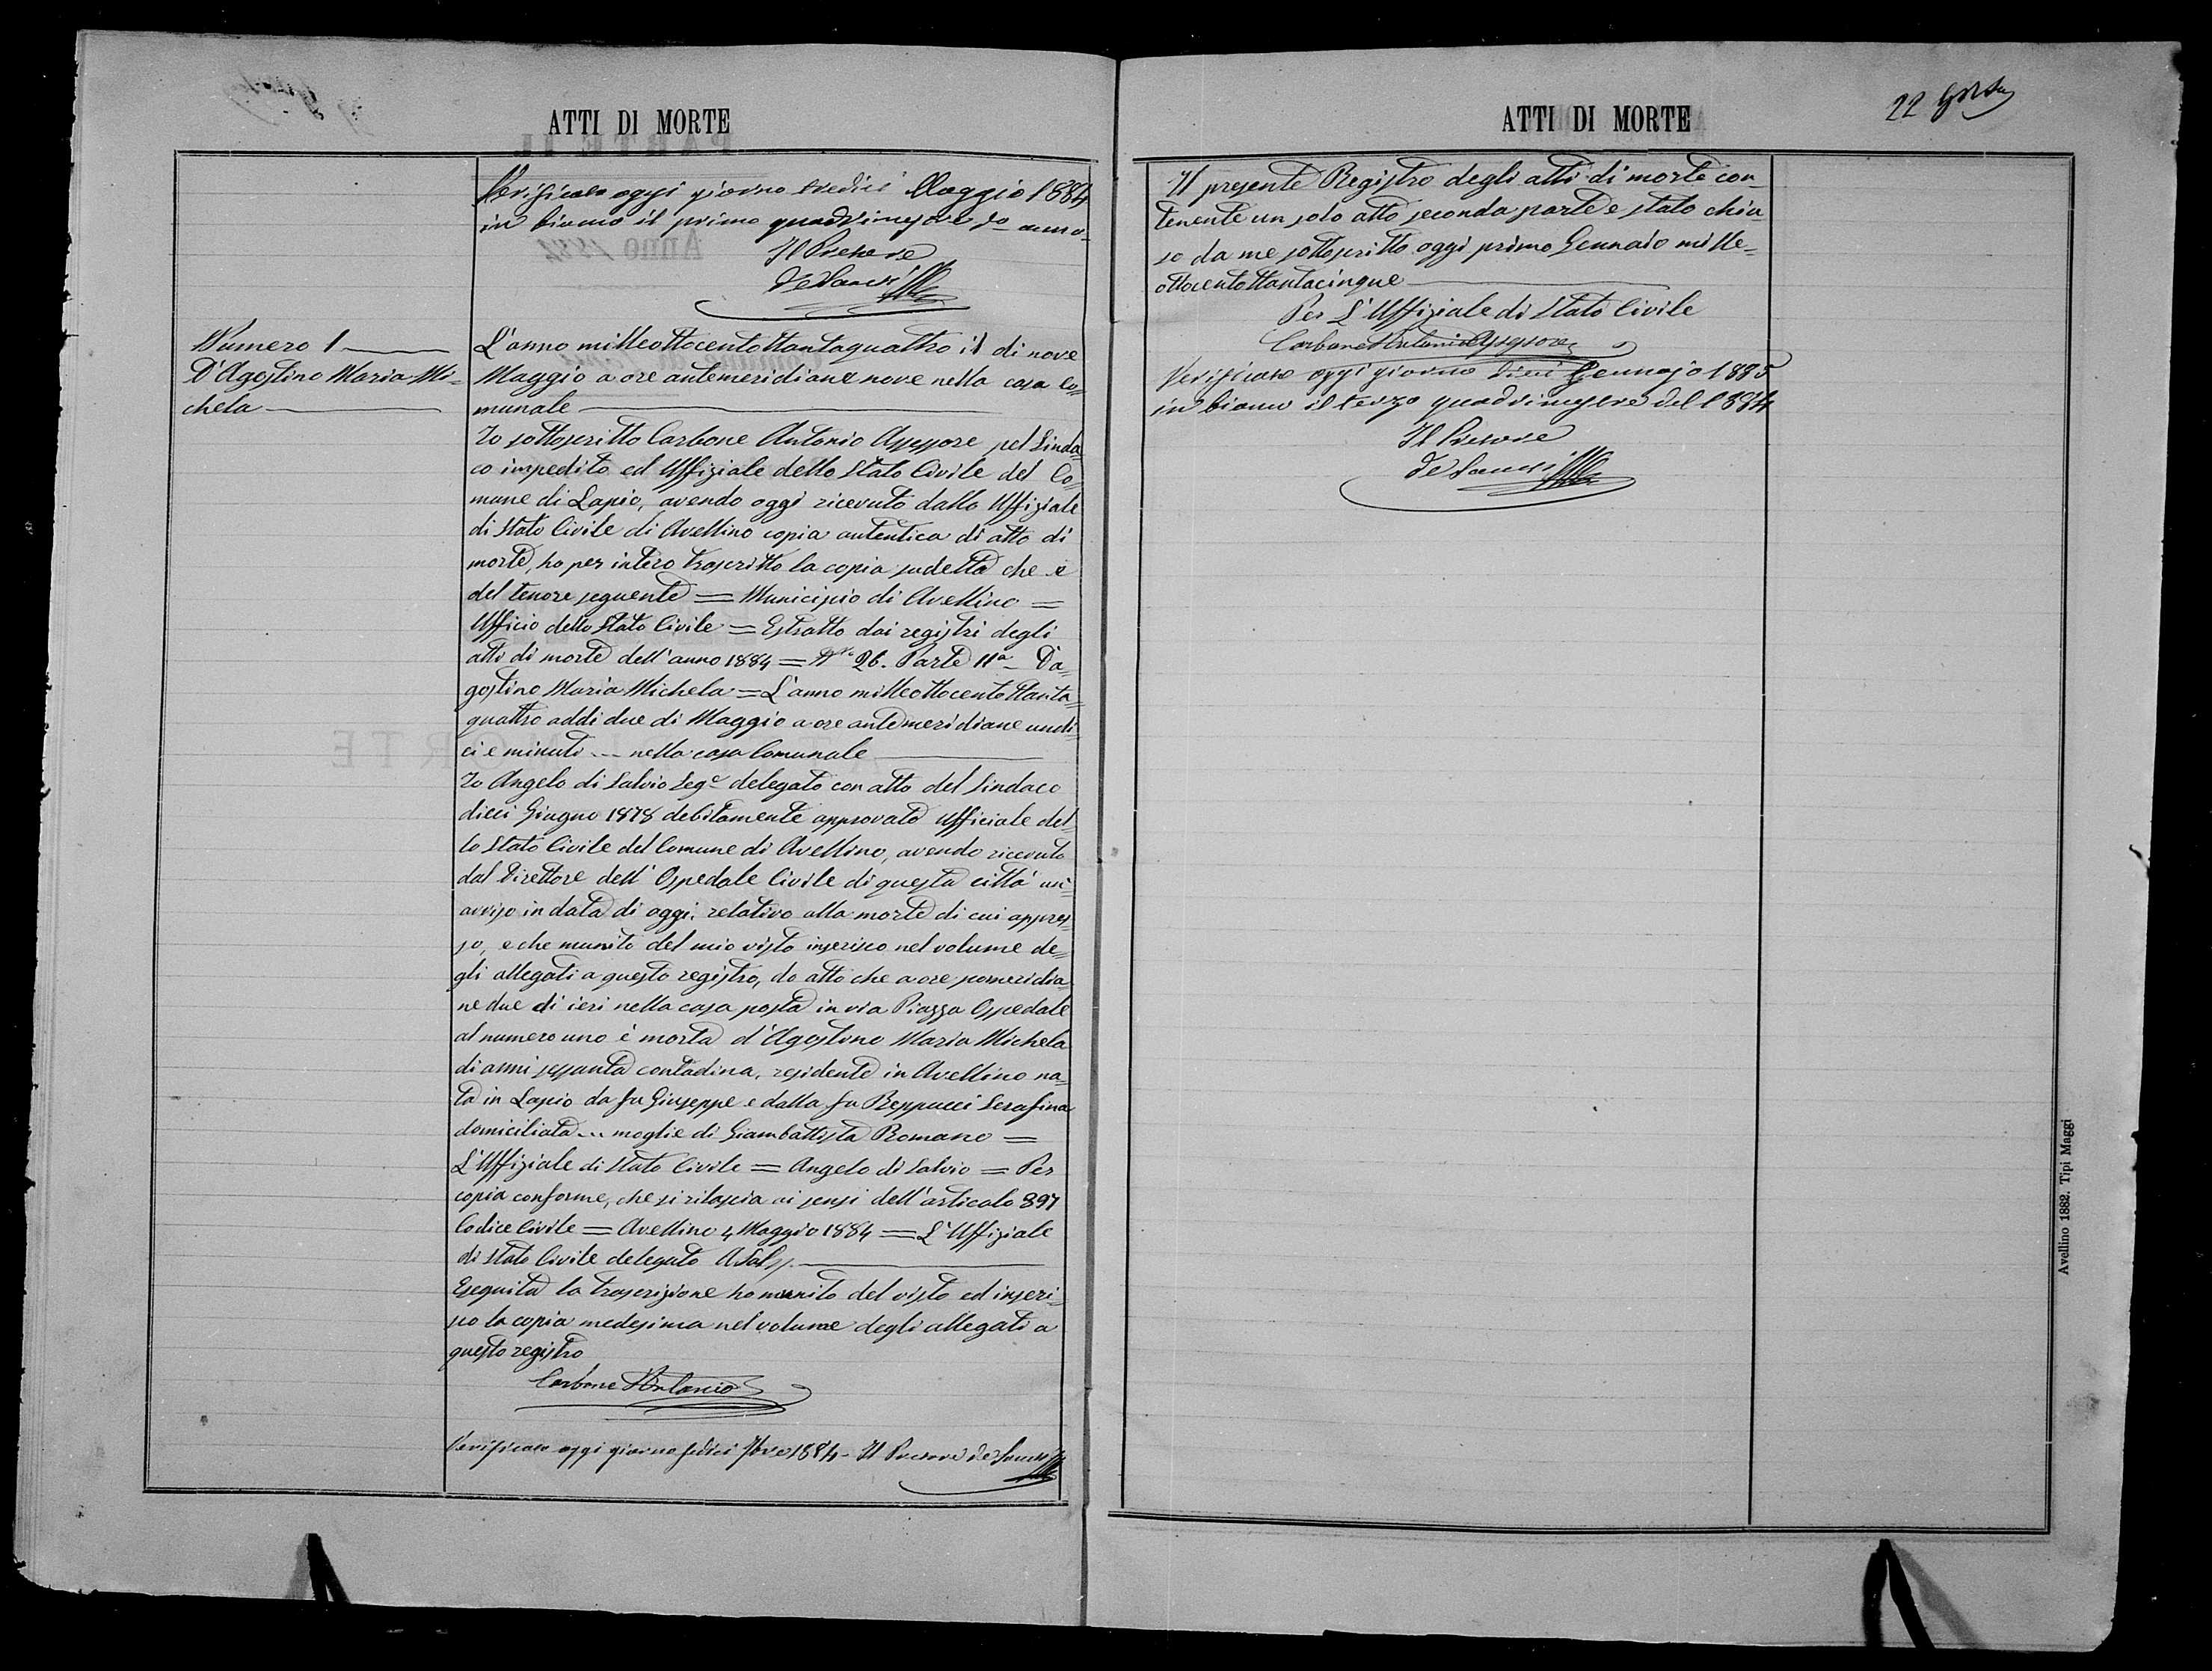 ATTI DI MORTE
Verificato oggi giorno tredici Maggio 1884
in bianco il primo quadrimestre do anno
Il Pretore
De Sanctis
Numero 1
D'Agostino Maria Mi=
chela
L'anno milleottocentottantaquattro il dì nove
Maggio a ore antemeridiane nove nella casa Co=
munale
Io sottoscritto Carbone Antonio Assessore pel Sinda=
co impedito ed Uffiziale dello Stato Civile del Co=
mune di Lapio, avendo oggi ricevuto dallo Uffiziale
di Stato Civile di Avellino copia autentica di atto di
morte, ho per intero trascritto la copia sudetta che è
del tenore seguente = Municipio di Avellino =
Ufficio dello Stato Civile = Estratto dai registri degli
atti di morte dell'anno 1884 = No 26. Parte IIa - D'a=
gostino Maria Michela = L'anno milleottocentottanta=
quattro addì due di Maggio a ore antemeridiane undi=
ci e minuti ... nella casa Comunale
Io Angelo di Salvio Sego delegato con atto del Sindaco
dieci Giugno 1878 debitamente approvato Ufficiale del=
lo Stato Civile del Comune di Avellino, avendo ricevuto
dal Direttore dell'Ospedale Civile di questa città un
avviso in data di oggi, relativo alla morte di cui appres=
so, e che munito del mio visto inserisco nel volume de=
gli allegati a questo registro, do atto che a ore pomeridia=
ne due di ieri nella casa posta in via Piazza Ospedale
al numero uno è morta d'Agostino Maria Michela
di anni sessanta contadina, residente in Avellino na=
ta in Lapio da fu Giuseppe e dalla fu Beppucci Serafina
domiciliata ... moglie di Giambattista Romano =
L'Uffiziale di Stato Civile = Angelo di Salvio = Per
copia conforme, che si rilascia ai sensi dell'articolo 397
Codice Civile = Avellino 4 Maggio 1884 = L'Uffiziale
di Stato Civile delegato
Eseguita la trascrizione ho munito del visto ed inseri=
sco la copia medesima nel volume degli allegati a
questo registro
Carbone Antonio
Verificato oggi giorno sedici 7bre 1884 - Il Pretore de Sanctis
ATTI DI MORTE
22
Il presente Registro degli atti di morte con=
tenente un solo atto seconda parte è stato chiu=
so da me sottoscritto oggi primo Gennaio mille=
ottocentottantacinque
Per L'Uffiziale di Stato Civile
Carbone Antonio Assessore
Verificato oggi giorno dieci Gennajo 1885
in bianco il terzo quadrimestre del 1884
Il Pretore
De Sanctis
Avellino 1882. Tipi Maggi